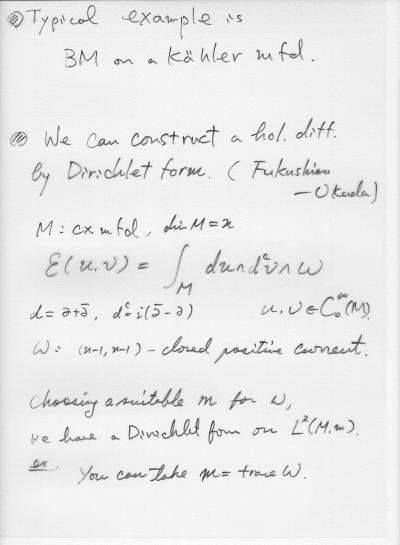 Typical example is
BM on a Kähler mfd.
We can construct a hol. diff.
by Dirichlet form. (Fukushima
—Okada)
M: cx mfd, dim M = n
ℰ(u,v) = ∫_M du∧d^c v∧ω
d = ∂+∂̄, d^c = i(∂̄-∂) u,v ∈ C_0^∞(M).
ω: (n-1,n-1)-closed positive current.
Choosing a suitable m for ω,
we have a Dirichlet form on L²(M,m).
ex. You can take m = trace ω.